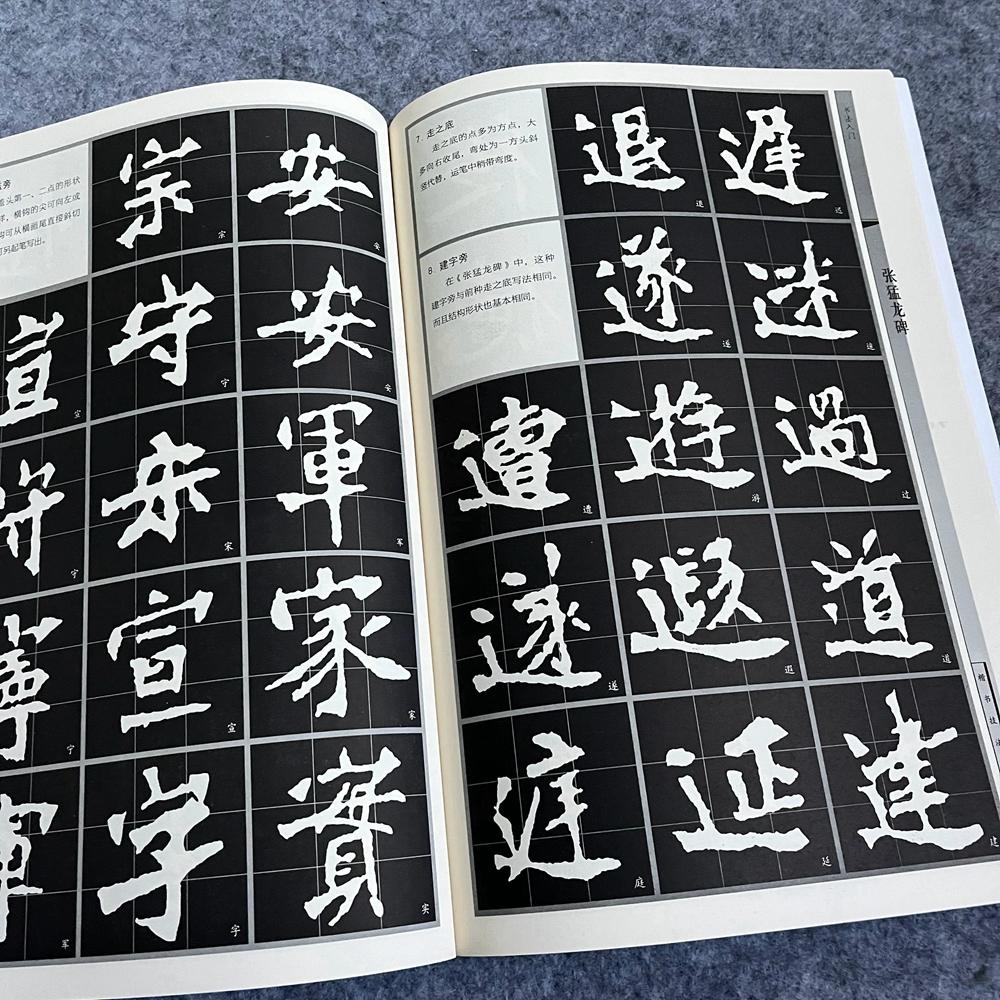 宗 安
宗 安
守 安
守 安
宣
宣
宋 軍
宋 军
宁
宣 家
宣 家
宁
字 實
字 实
军
盖头第一、二点的形状
横钩的尖可向左或
钩可从横画尾直接斜切
可另起笔写出。
7. 走之底
走之底的点多为方点，大
多向右收尾，弯处为一方头斜
竖代替，运笔中稍带弯度。
8. 建字旁
在《张猛龙碑》中，这种
建字旁与前种走之底写法相同。
而且结构形状也基本相同。
退 遲
退 迟
遂
遂 速
遭 遊 過
遭 游 过
遂 遐 道
遂 遐 道
庭 延 建
庭 延 建
书法入门
张猛龙碑
楷书技法